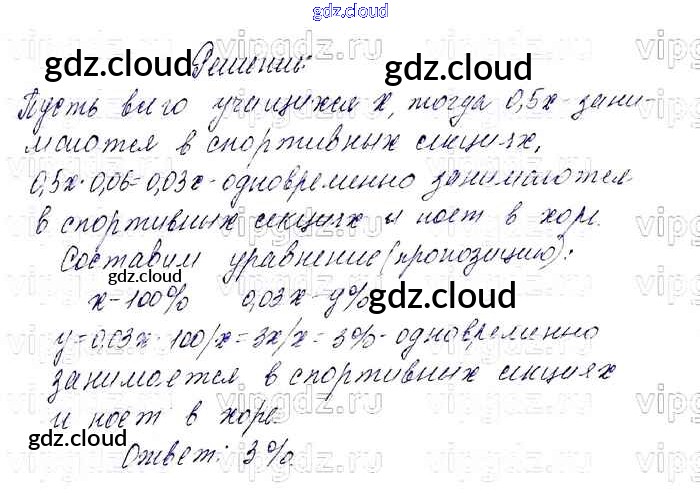 gdz.cloud
Решение:
gdz.cloud gdz.cloud
Пусть всего учащихся x, тогда 0,5x - зани-
маются в спортивных секциях,
0,5x · 0,06 = 0,03x - одновременно занимаются
в спортивных секциях и поет в хоре.
Составим уравнение (пропозицию):
gdz.cloud
x - 100% 0,03x - y%
gdz.cloud
y = 0,03x · 100/x = 3x/x = 3% - одновременно
занимается в спортивных секциях
и поет в хоре.
gdz.cloud
Ответ: 3%.
vipgdz.ru